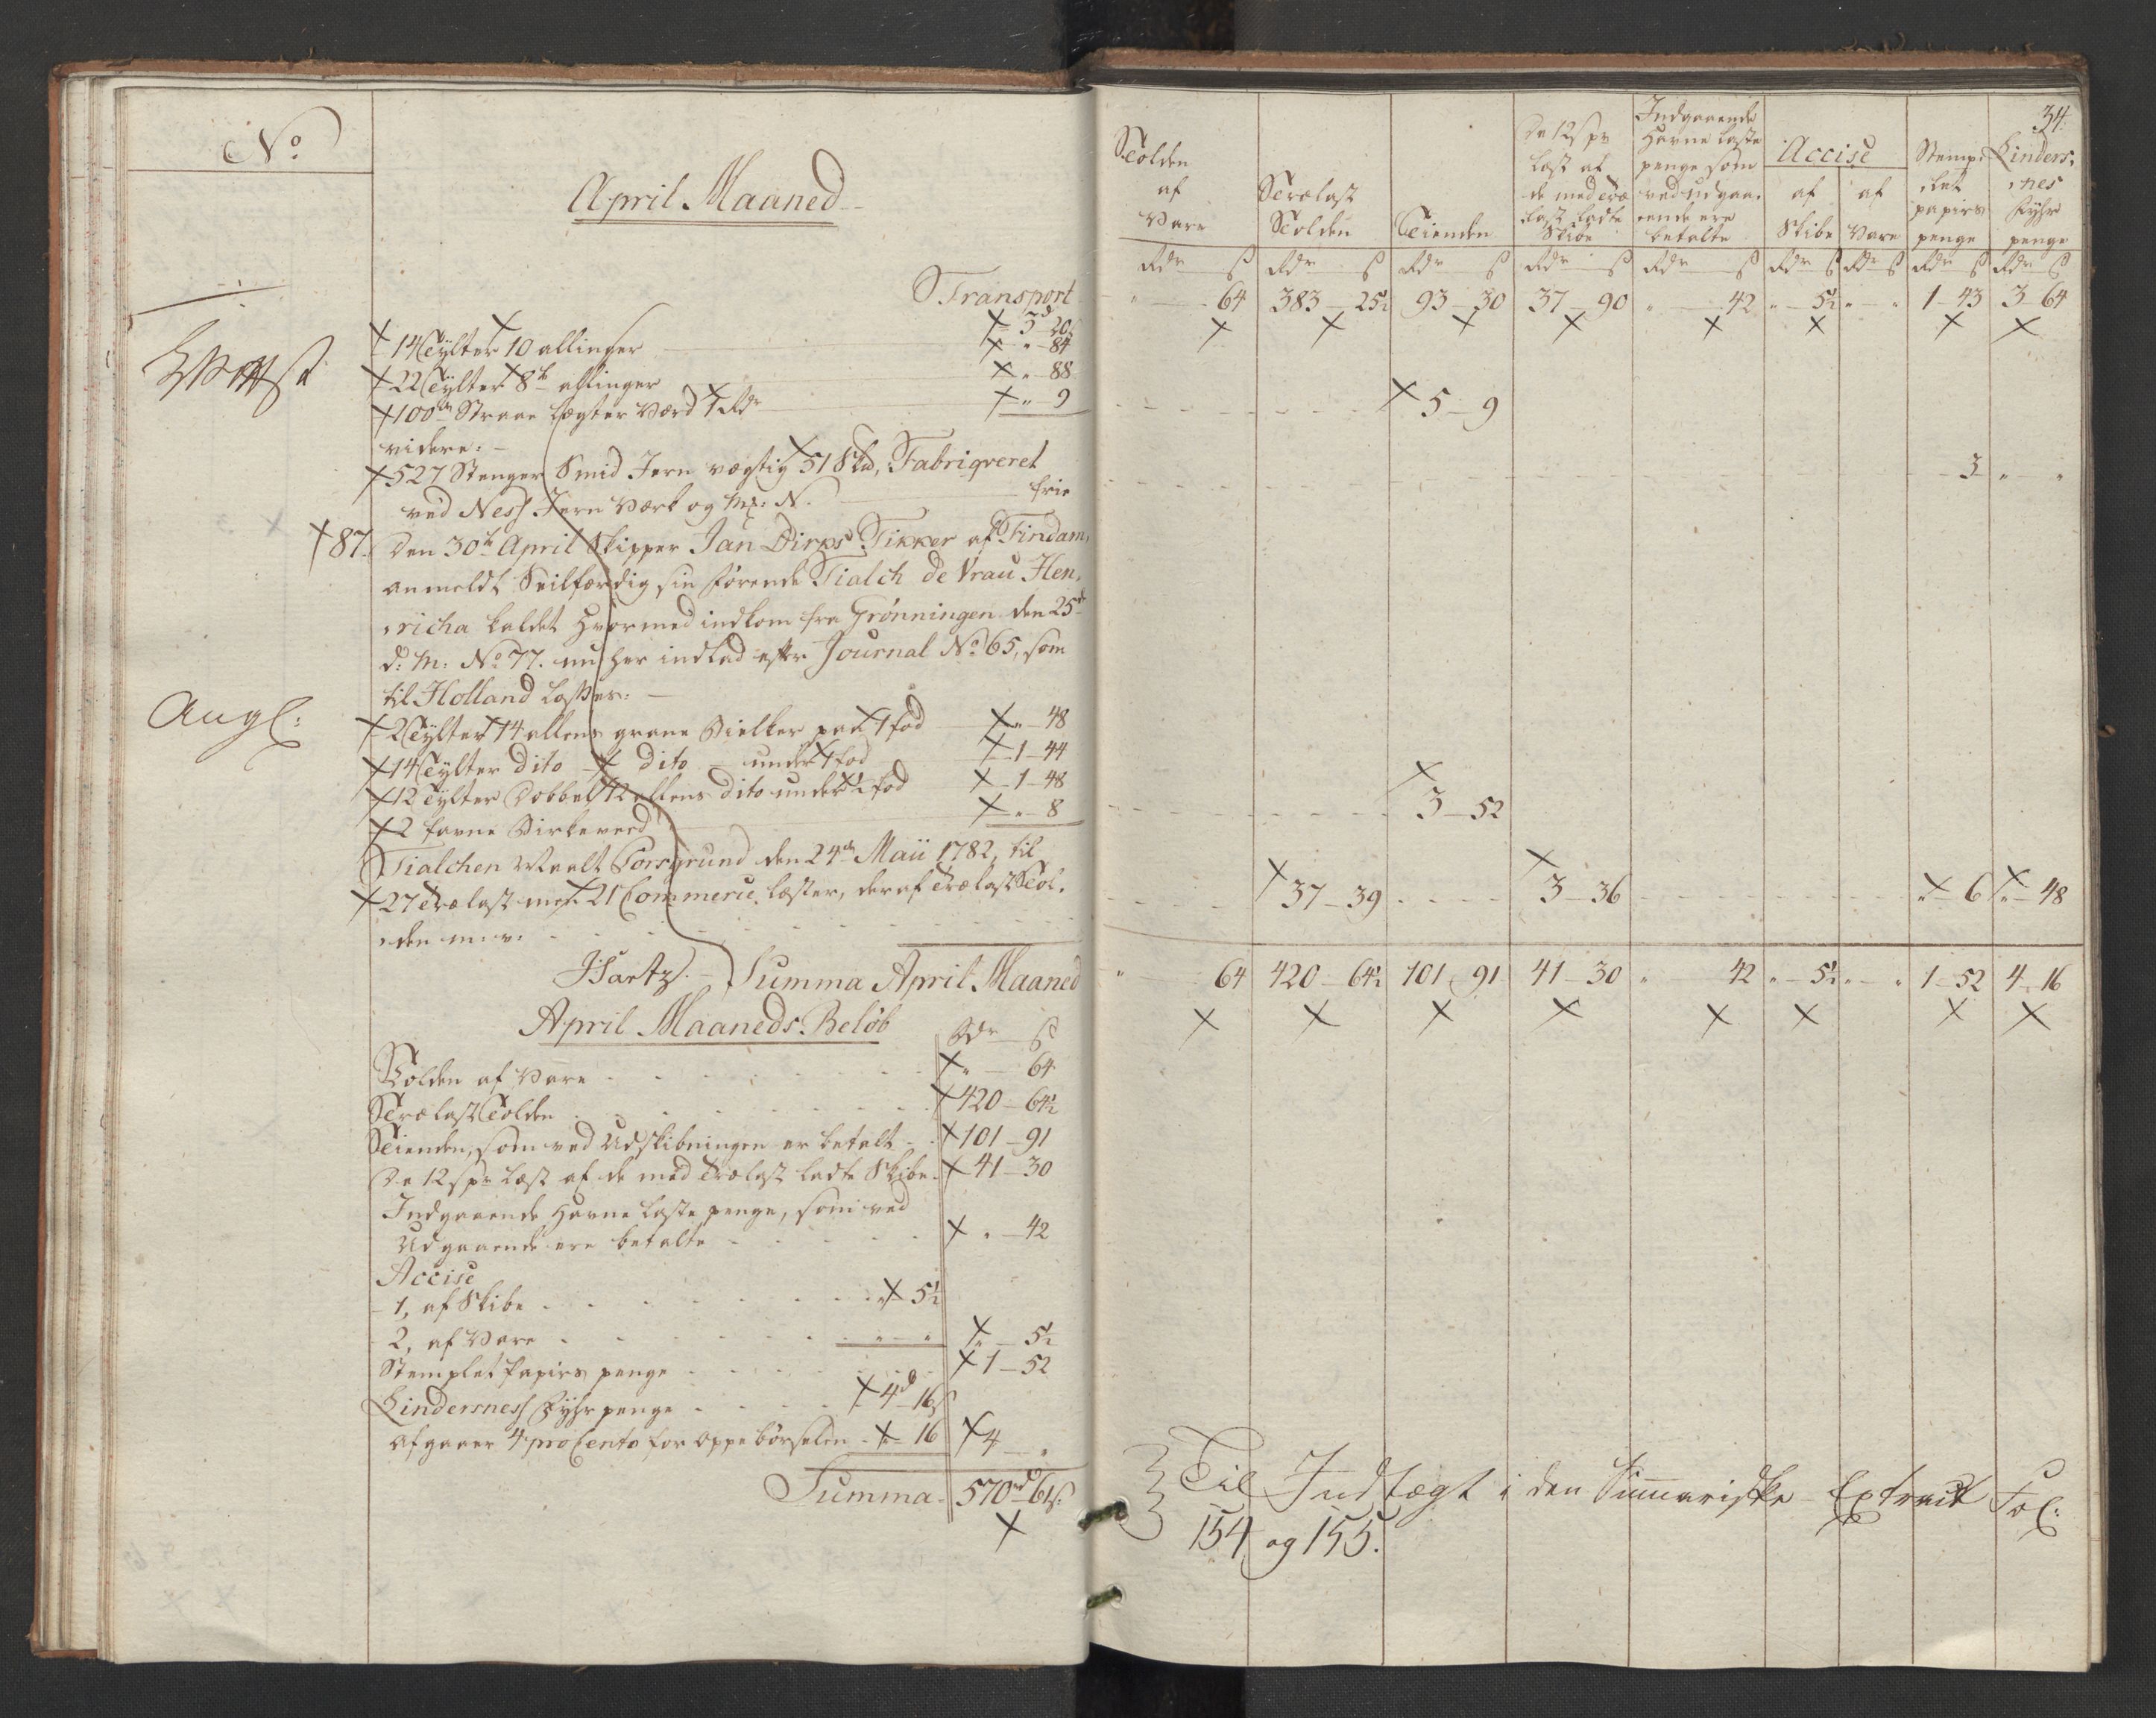 No
April Maaned
Transport
14 Tylter 10 allinger 3d 20s
84
22 Tylter 8te allinger 88
100 Straae Lægter Værd 1 Rdr 9
videre:
527 Stenger Smid Jern vægtig 51 Skd, Fabriqveret
ved Ness Jern Værk og Mrk: N. frie
87. Den 30te April Skipper Jan Dirks Tikker af Findam,
anmeldt Seilfærdig sin førende Tialch de Vrau Hen,
richa kaldet hvormed indkom fra Grønningen den 25de
d: M: No 77. nu her indlad efter Journal No 65, som
til Holland Losses:
Angl:
2 Tylter 14 allens grane Bielker paa 1 fod " 48
14 Tylter dito dito under 1 fod 1 - 44
12 Tylter Dobbel 12 allens dito under 1/2 fod 1 - 48
2 favne Birkeved " 8
Tialchen Maalt Porsgrund den 24de Maii 1782, til
27 Trælast med 21 Commerce Læster, deraf Trælast Tol,
den m: v:
Hartz. Summa April Maaned
April Maaneds Beløb
Rdr s
Tolden af Vare " 64
Trælast Tolden 420 - 64 1/2
Tienden, som ved Udskibningen er betalt 101 - 91
De 12 s pr Læst af de med Trælast ladte Skibe 41 - 30
Indgaaende Havne Laste penge, som ved
Udgaaende ere betalte " 42
Accise
1, af Skibe " 5 1/2
2, af Vare " " " 5 1/2
Stemplet Papirs penge 1 - 52
Lindersness Fyhr penge 4d 16s
afgaaer 4 pro Cento for oppebørselen " 16 4 "
Summa 570rd 61s
34.
Tolden af Vare
Trælast Tolden
Tienden
De 12 s pr Last af de med Træ last ladte Skibe
Indgaaende Havne Laste penge som ved udgaa, ende ere betalte
Accise
af Skibe
af Vare
Stemp, let papirs penge
Linders, nes Fyhr penge
Rdr s Rdr s Rdr s Rdr s Rdr s Rdr s Rdr s Rdr s Rdr s
" 64 383 - 25 1/2 93 - 30 37 - 90 " 42 " 5 1/2 " " 1 - 43 3 - 64
5 - 9
3 " "
3 - 52
37 - 39 3 - 36 " 6 " 48
" 64 420 - 64 1/2 101 - 91 41 - 30 " 42 " 5 1/2 " " 1 - 52 4 - 16
Til Indtægt i den Summariske Extract Fol:
154 og 155.